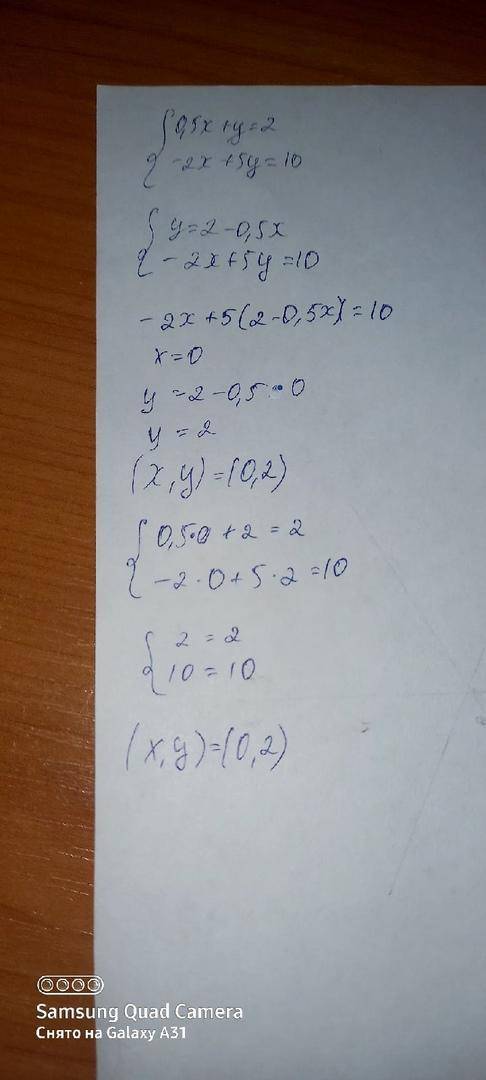 {0,5x+y=2
-2x+5y=10
{y=2-0,5x
-2x+5y=10
-2x+5(2-0,5x)=10
x=0
y=2-0,5·0
y=2
(x,y)=(0,2)
{0,5·0+2=2
-2·0+5·2=10
{2=2
10=10
(x,y)=(0,2)
Samsung Quad Camera
Снято на Galaxy A31